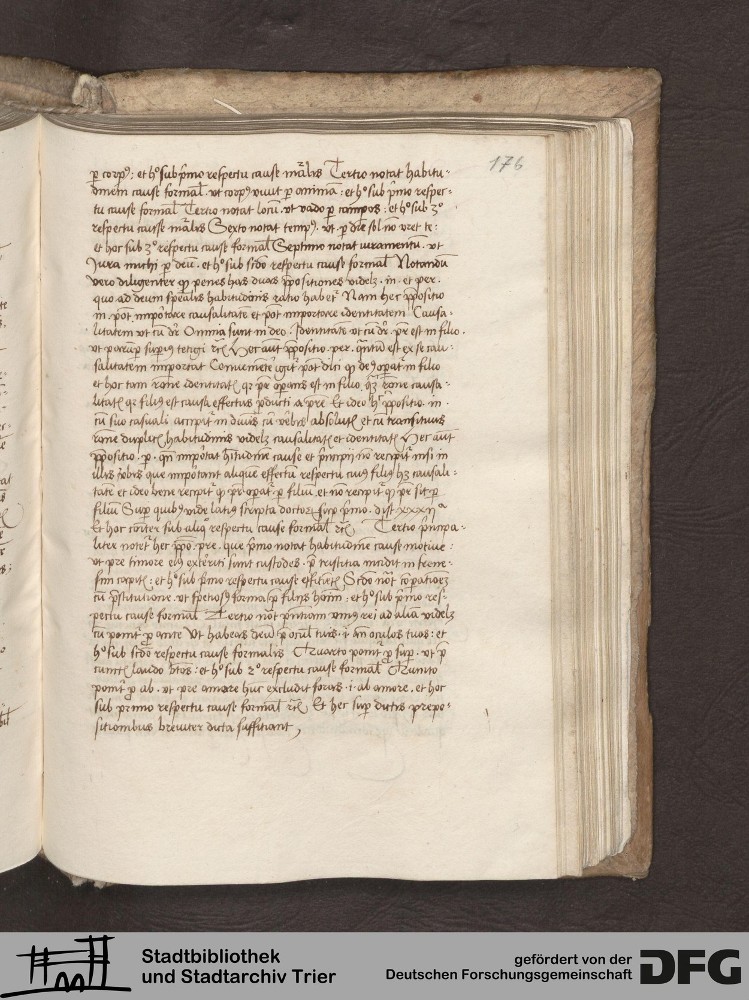 176
p corpꝯ; et hº sub pͥmo respectu cause mãlis Tertio notat habitu-
dinem cause formal̃. vt corpꝯ viuit p animã: et hº sub pͥmo respec-
tu cause formal̃ Tertio notat locũ. vt vado p campos: et hº sub 3º
respectu causse mãlis Sexto notat tempꝯ. vt p diẽ sol nõ vret te:
et hoc sub 3º respectu cause formal̃ Septimo notat iuramentũ. vt
Jura michi p deũ. et hº sub scďo respectu cause formal̃ Notandũ
vero diligenter ꝙ penes has duas p̃positiones videlꝫ. in. et per.
quo ad deum sp̃ealis habitudinis ratio habet᷑ Nam hec p̃positio
in. põt importare causalitatẽ et põt importare identitatem Causa-
litatem vt cũ dr̃ Omnia sunt in deo. Jdentitatẽ vt cũ dr̃. pr̃ est in filio.
vt parũp supiꝯ tetigi ⁊c̃ Hec aũt p̃positio. per. q̃ntũ est ex se cau-
salitatem importat Conuenient᷑ igit᷑ põt dici ꝙ deꝯ opat᷑ in filio
et hoc tam rõne identitatꝭ qꝛ pr̃ opans est in filio. qꝫ rõne causa-
litatꝭ qꝛ filiꝯ est causa effectus p̃ducti a pr̃e Et ideo hͨ p̃positio. in.
cũ suo casuali accipit᷑ in diuis cũ v̑bis absolutꝭ et cũ transitiuis
rõne duplicꝭ habitudinis videlꝫ causalitatꝭ et identitatꝭ Hec aũt
p̃positio. p. qñ importat hitudinẽ cause et pͥncipij nõ recipit᷑ nisi in
illis v̑bis que important aliquẽ effectũ respectu cuiꝯ filiꝯ hꝫ causali-
tatẽ et ideo bene recipit᷑ ꝙ pr̃ opat᷑ p filiũ. et nõ recipit᷑ ꝙ pr̃ sit p
filiũ Sup quibꝯ vide latiꝯ scripta doctoꝝ sup pͥmo. dist. xxxij ᵃ
Et hoc cõiter sub aliqº respectu cause formal̃ ⁊c̃ Tertio pͥncipa-
liter notet᷑ hec p̃põ. pre. que pͥmo notat habitudinẽ cause motiue:
vt pre timore eiꝯ exterriti sunt custodes. p̃ tristitia incidit in
et hº sub pͥmo respectu cause efficiẽtꝭ Scďo nõt cõpationẽ
vt speciosꝯ forma p̃ filijs hoĩm: et hº sub pͥmo res-
pectu cause formal̃ Tertio nõt pñtiam vniꝯ rei ad aliã videlꝫ
cũ ponit᷑ p ante Vt habeas deũ p̃ ocul̃ tuis. i. an oculos tuos: et
hº sub scďo respectu cause formalis Quarto ponit᷑ p sup. vt p̃
cunctꝭ laudo : et hº sub 2º respectu cause formal̃ Quinto
ponit᷑ p ab. vt pre amore hũc excludit foras. i. ab amore. et hoc
sub primo respectu cause formal̃ ⁊c̃ Et hec sup dictis prepo-
sitionibus breuiter dicta sufficiant,
Stadtbibliothek
und Stadtarchiv Trier
gefördert von der
Deutschen Forschungsgemeinschaft
DFG